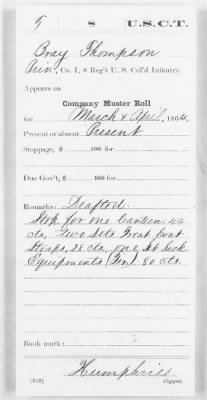 T 8 U.S.C.T.
Bray Thompson
Priv., Co. I, 8 Reg't U. S. Col'd Infantry.
Appears on
Company Muster Roll
for March & April, 1864.
Present or absent Present
Stoppage, $ 100 for
Due Gov't, $ 100 for
Remarks: Drafted.
Stop for one Canteen 44
cts, two sets Great Coat
Straps, 28 cts, one set Sack
Equipments (Inf), 80 cts.
Book mark:
Humphries
(358) Copyist.